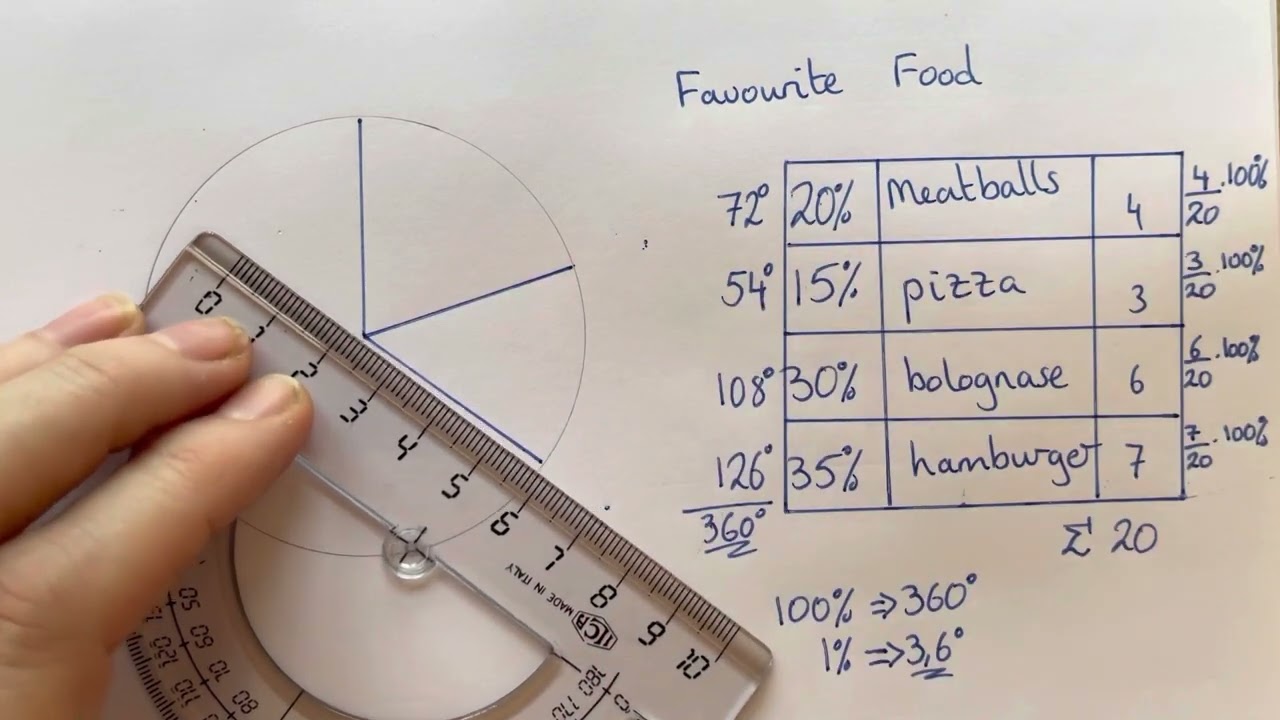 Favourite Food
72° 20% Meatballs 4 4/20 .100%
54° 15% pizza 3 3/20 .100%
108° 30% bolognase 6 6/20 .100%
126° 35% hamburger 7 7/20 .100%
360° Σ 20
100% ⇒ 360°
1% ⇒ 3,6°
0 1 2 3 4 5 6 7 8 9 10
MADE IN ITALY
50
60
120
70
110
80
180
170
0°